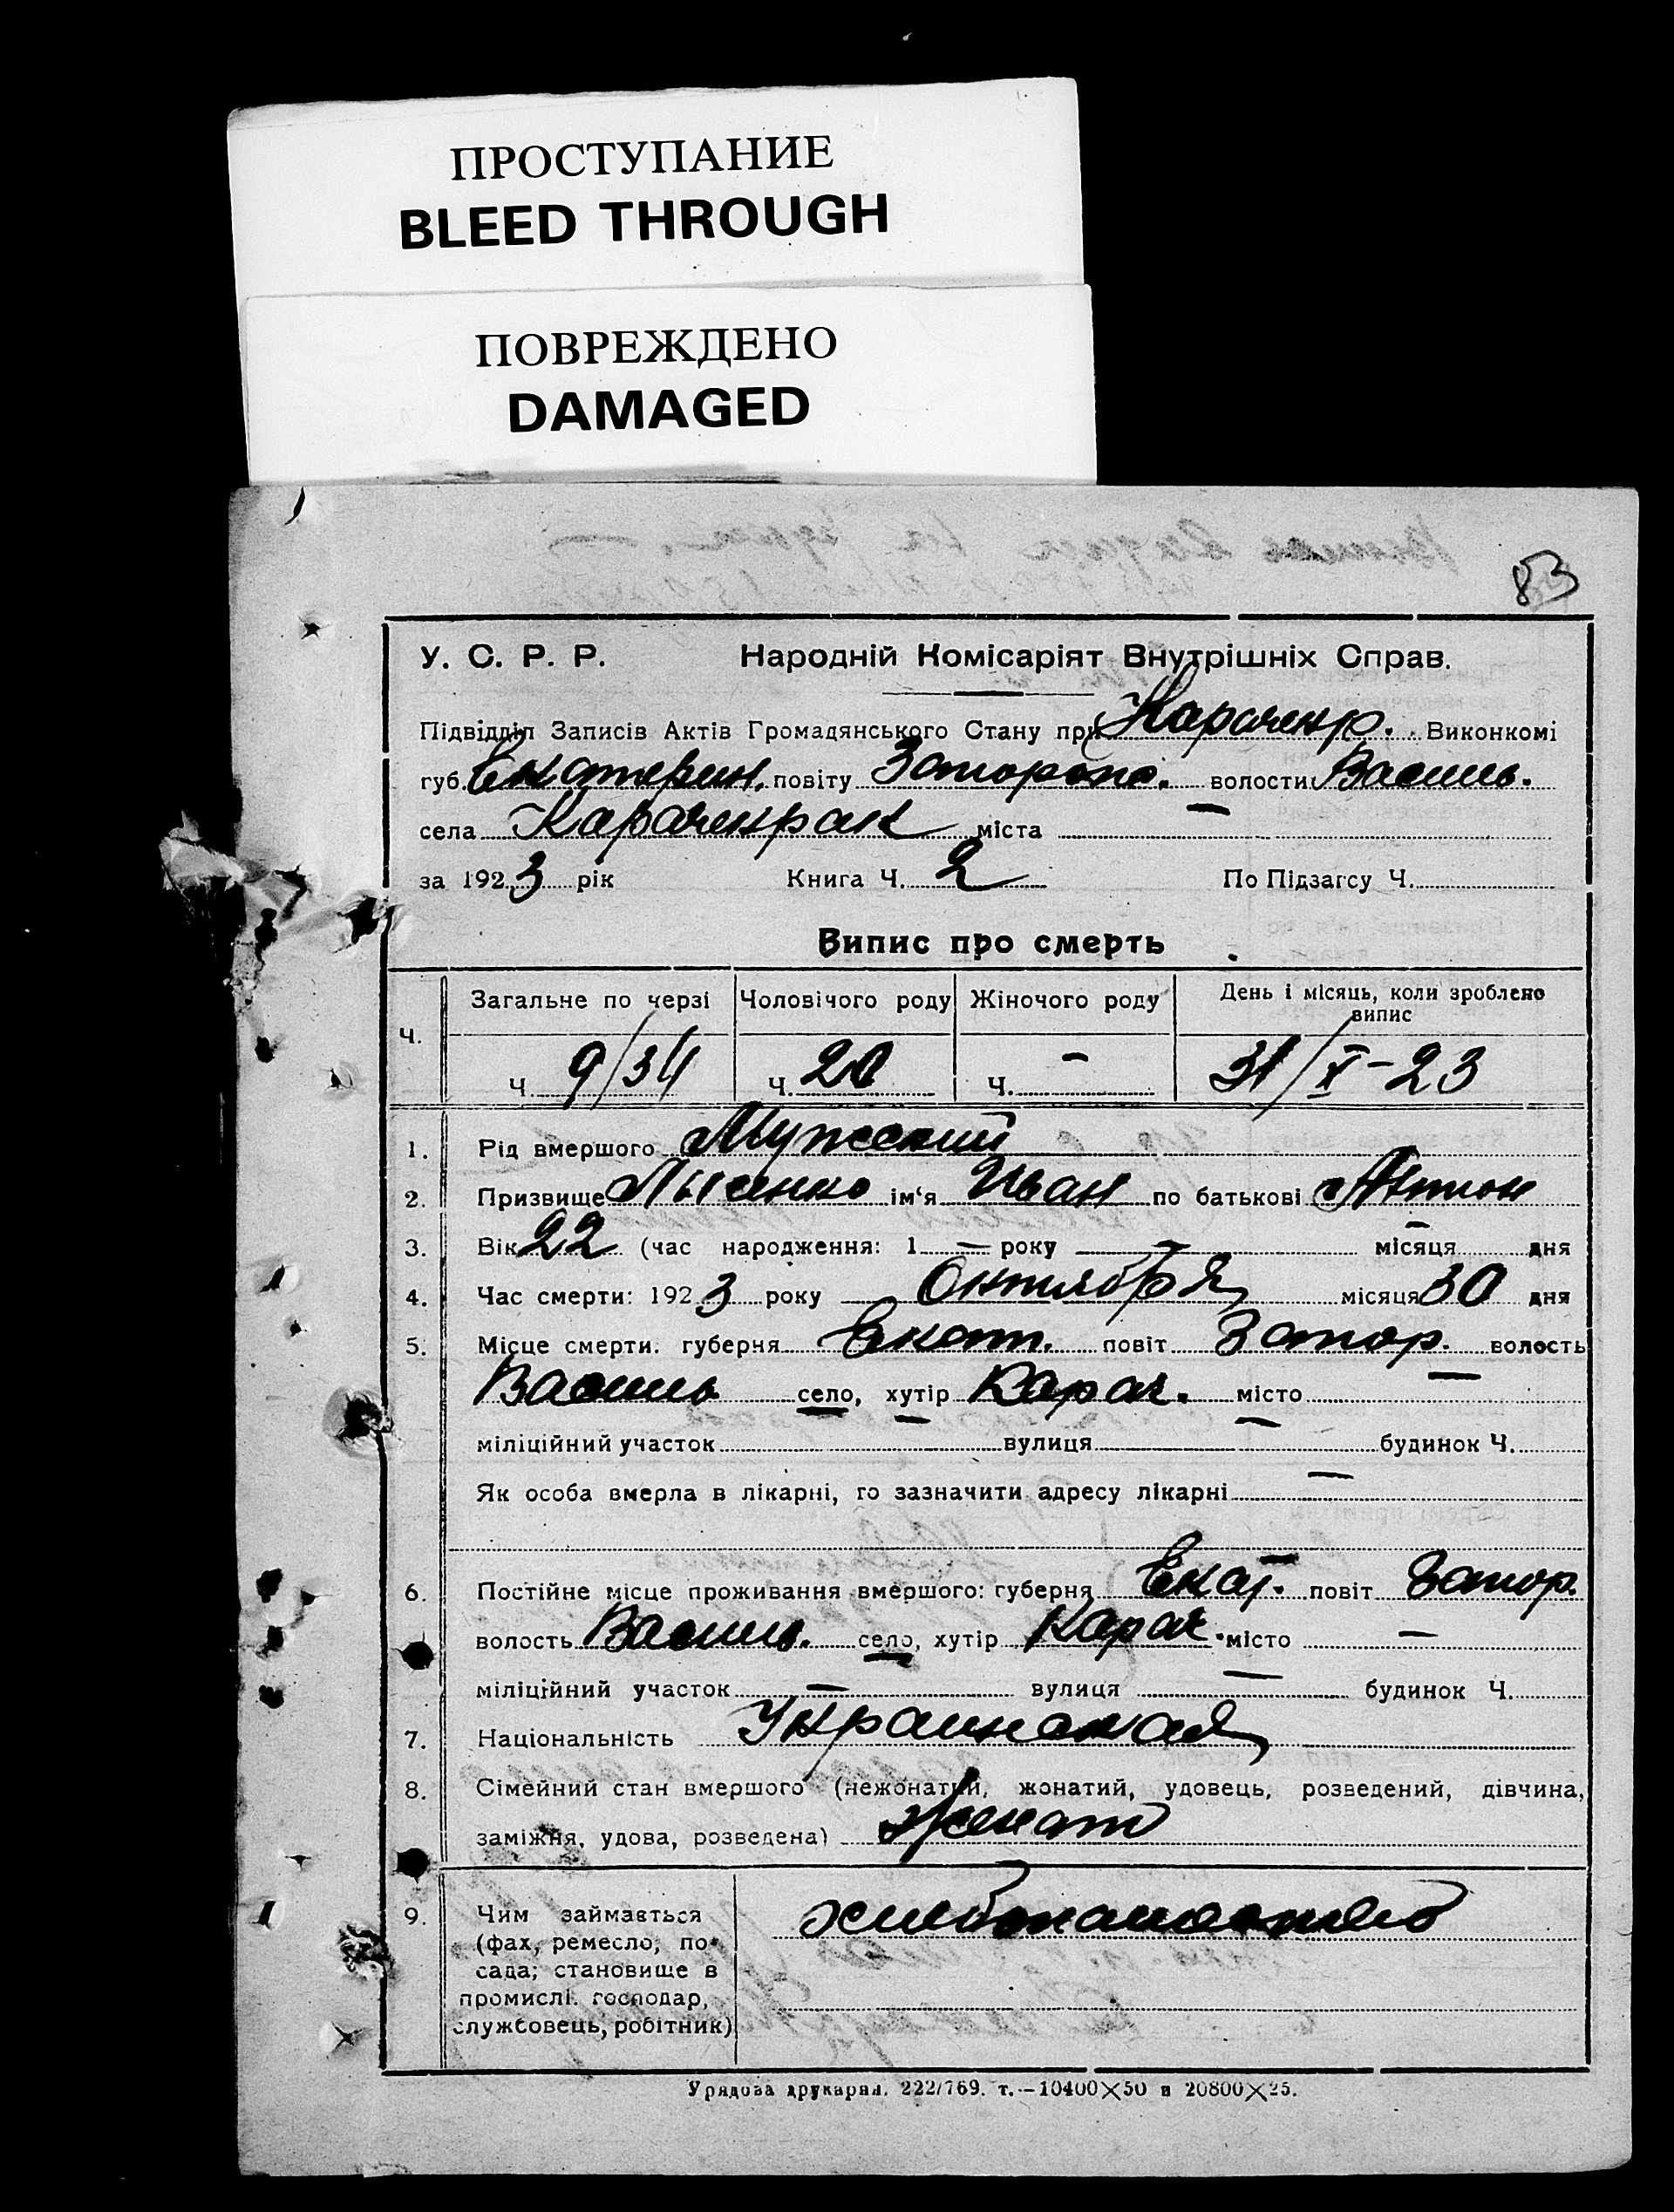 ПРОСТУПАНИЕ
BLEED THROUGH
ПОВРЕЖДЕНО
DAMAGED
83
У. С. Р. Р. Народній Комісаріят Внутрішніх Справ.
Підвідділ Записів Актів Громадянського Стану при Карачекр. Виконкомі
губ. Екатерин. повіту Запорож. волости Васил.
села Карачекрак міста —
за 1923 рік Книга Ч. 2 По Підзагсу Ч.
Випис про смерть
Ч. Загальне по черзі Чоловічого роду Жіночого роду День і місяць, коли зроблено випис
Ч. 9/34 Ч. 20 Ч. - 31/X-23
1. Рід вмершого Мужский
2. Призвище Лысенко ім‘я Иван по батькові Антон
3. Вік 22 (час народження: 1 — року — місяця — дня
4. Час смерти: 1923 року Октября місяця 30 дня
5. Місце смерти. губерня Екат. повіт Запор. волость
Василь село, хутір Карач. місто —
міліційний участок — вулиця — будинок Ч. —
Як особа вмерла в лікарні, то зазначити адресу лікарні —
6. Постійне місце проживання вмершого: губерня Екат. повіт Запор.
волость Василь. село, хутір Карач. місто —
міліційний участок — вулиця — будинок Ч.
7. Національність Украинская
8. Сімейний стан вмершого (нежонатий, жонатий, удовець, розведений, дівчина,
заміжня, удова, розведена) Женат
9. Чим займається хлебопашество
(фах, ремесло; по-
сада; становище в
промислі. господар,
службовець, робітник)
Урядова друкарня. 222/769. т.—10400×50 и 20800×25.